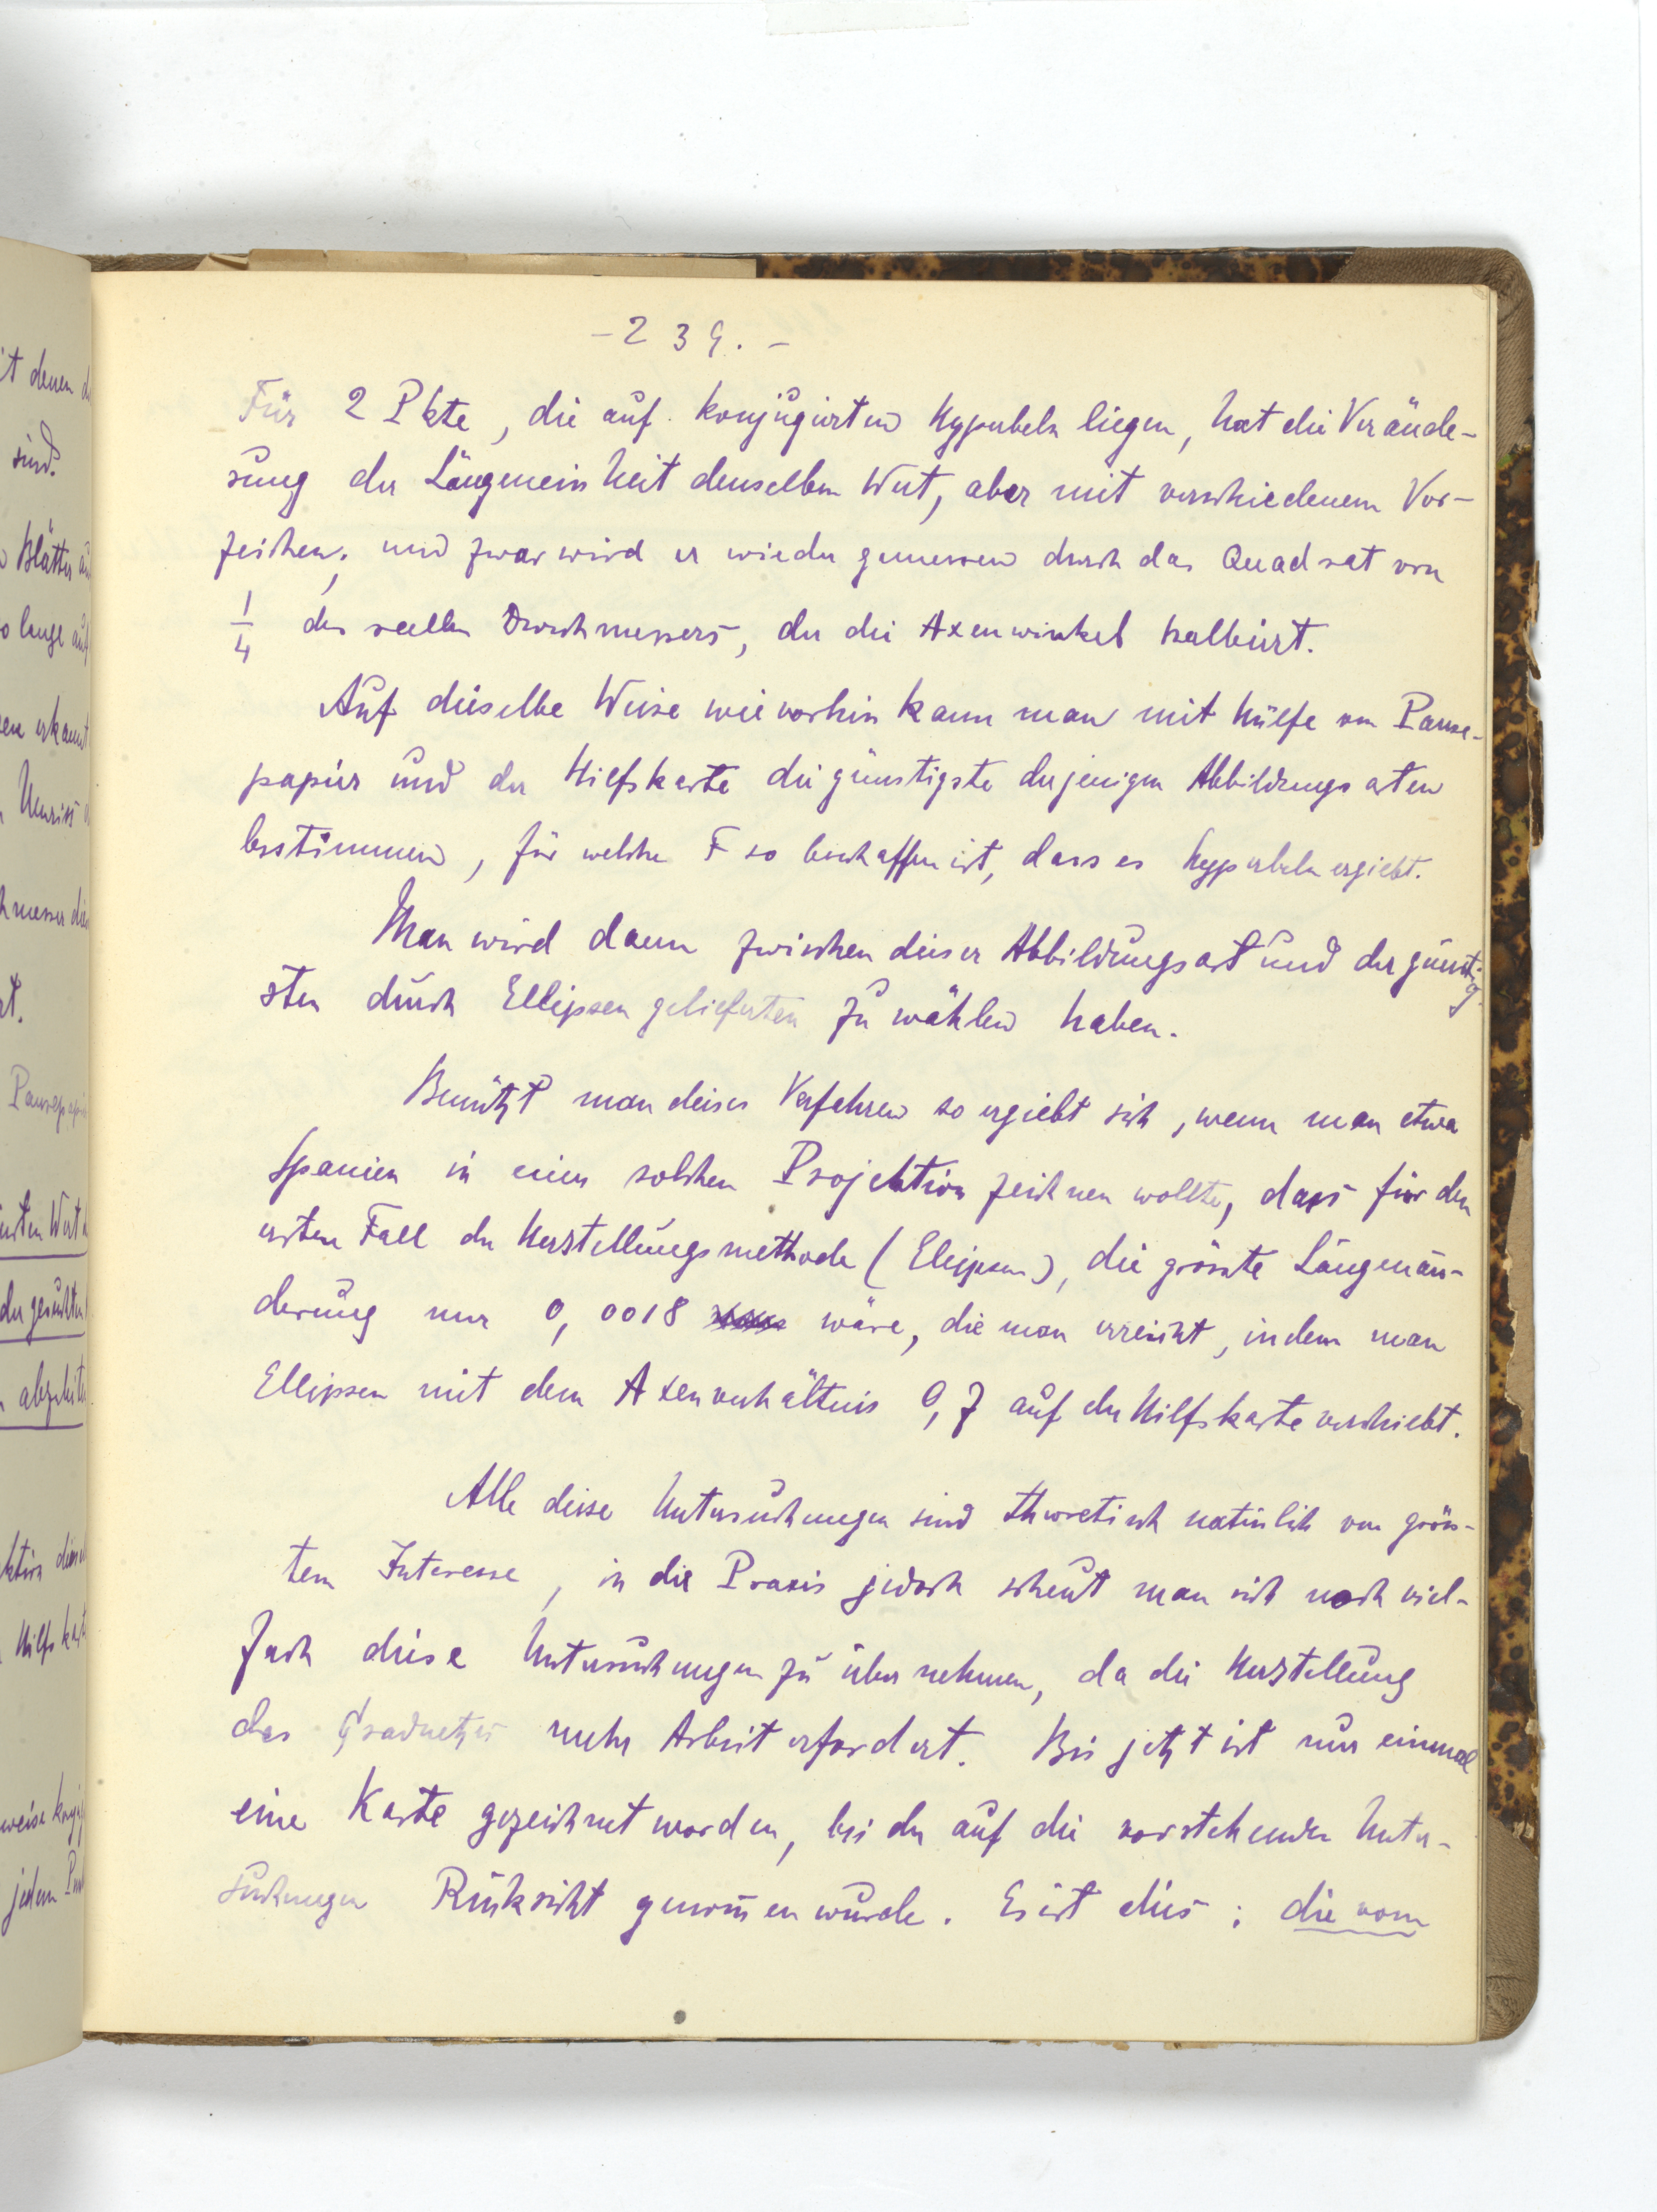 - 239. -
Für 2 Pkte, die auf konjugierten Hyperbeln liegen, hat die Verände-
rung der Längeneinheit denselben Wert, aber mit verschiedenem Vor-
zeichen; und zwar wird er wieder gemessen durch das Quadrat von
1/4 des reellen Durchmessers, der die Axenwinkel halbiert.
Auf dieselbe Weise wie vorhin kann man mit Hülfe von Pause-
papier und der Hilfskarte die günstigste derjenigen Abbildungsarten
bestimmen, für welche F so beschaffen ist, dass es Hyperbeln ergiebt.
Man wird dann zwischen dieser Abbildungsart und der günstig-
sten durch Ellipsen gelieferten zu wählen haben.
Benützt man dieses Verfahren so ergiebt sich, wenn man etwa
Spanien in einer solchen Projektion zeichnen wollte, dass für den
ersten Fall der Herstellungsmethode (Ellipsen), die grösste Längenän-
derung nur 0,0018 wäre, die man erreicht, indem man
Ellipsen mit dem Axenverhältnis 0,7 auf der Hilfskarte verschiebt.
Alle diese Untersuchungen sind theoretisch natürlich von grös-
tem Interesse, in die Praxis jedoch scheut man sich noch viel-
fach diese Untersuchungen zu übernehmen, da die Herstellung
des Gradnetzes mehr Arbeit erfordert. Bis jetzt ist nur einmal
eine Karte gezeichnet worden, bei der auf die vorstehenden Unter-
suchungen Rücksicht genom̄en wurde. Es ist dies: die vom
it denen
sind.
Blätter
so lange auf
erkannt
Umriss
t.
Pausepapier
Wert
der gesuchten
Hilfskarte
weise
jedem